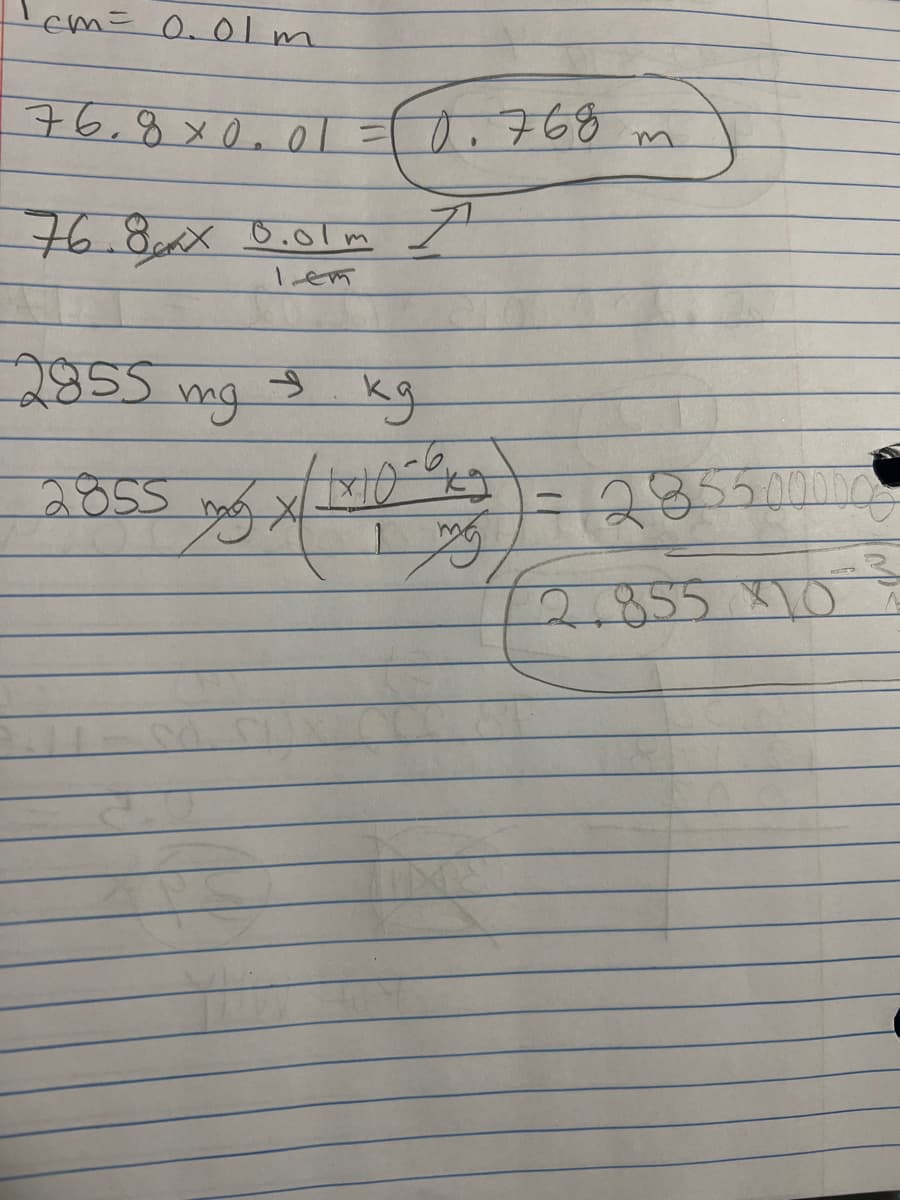 1 cm = 0.01 m
76.8 x 0.01 = 0.768 m
76.8 cm x 0.01 m
1 cm
2855 mg → kg
2855 mg x ( 1x10⁻⁶ kg ) =
1 mg
2.855 x10⁻³